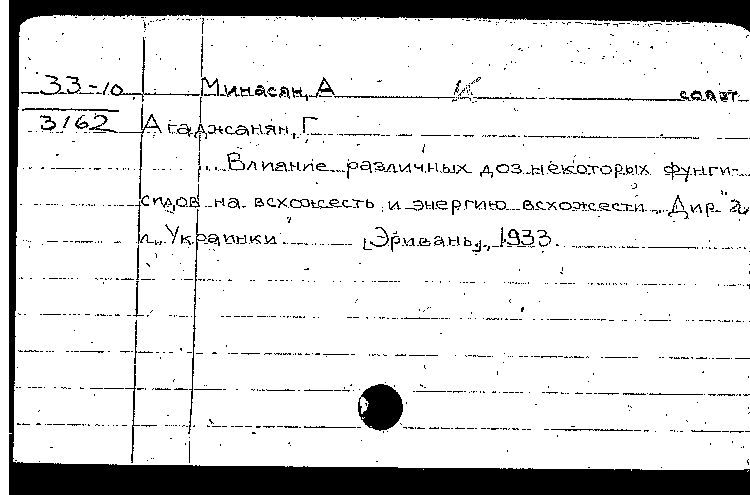 33-10 Минасян, А К соавт
3162 Агаджанян, Г
Влияние различных доз некоторых фунги-
сидов на всхожесть и энергию всхожести „Дир"
и „Украинки" [Эривань], 1933.